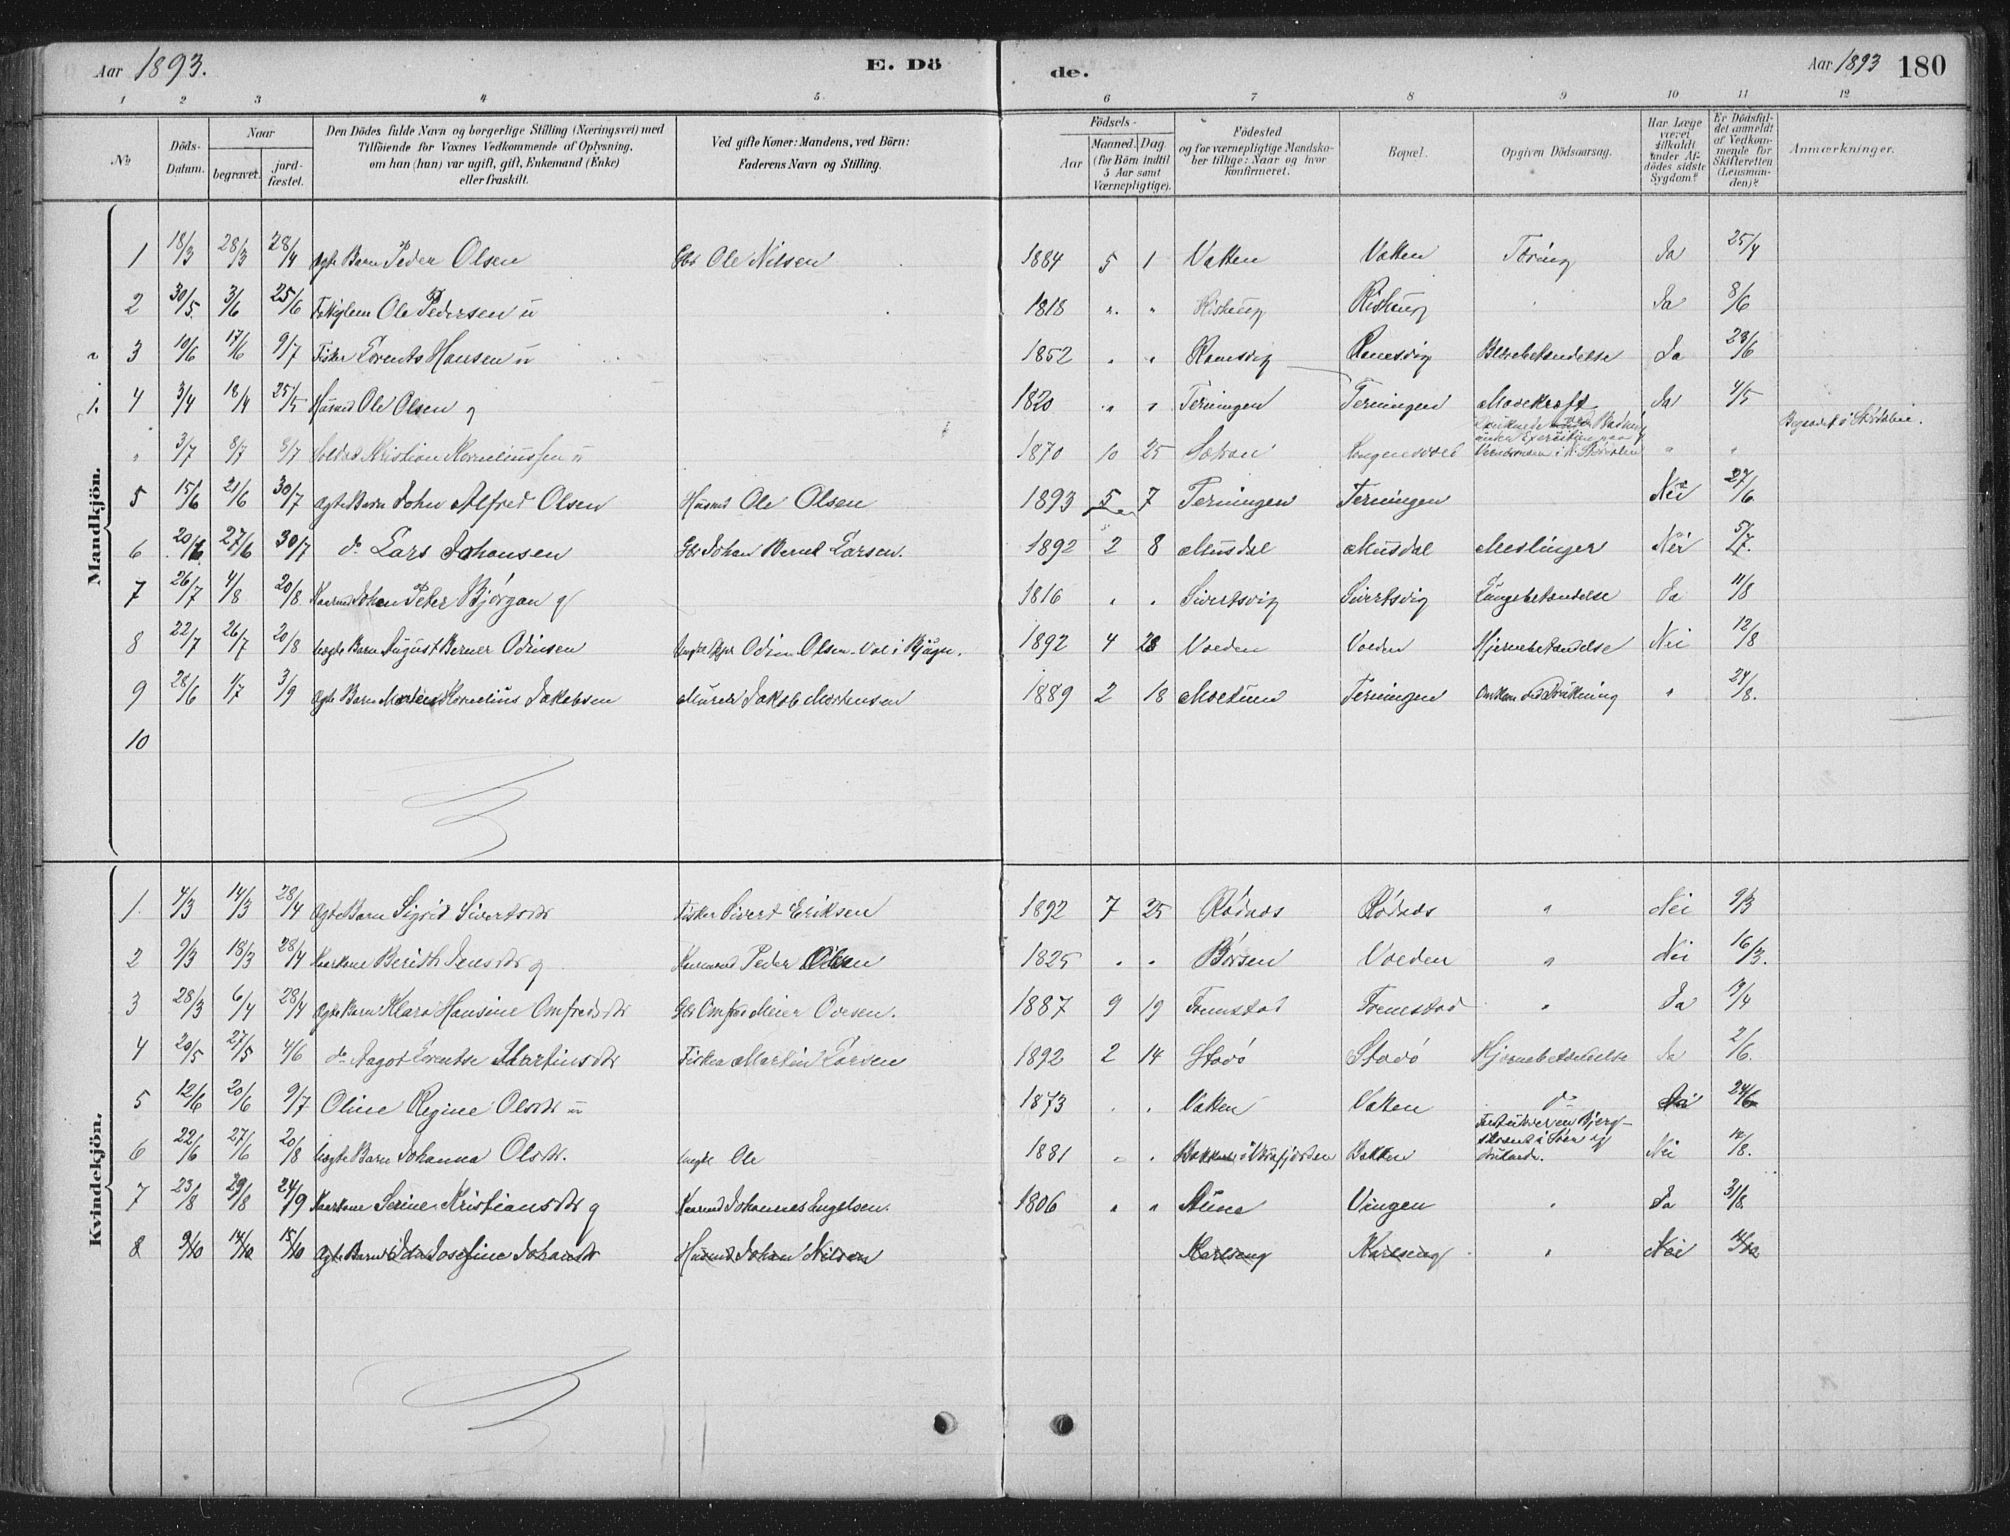 Aar 1893. E. Dö de. Aar 1893 180
1 2 3 4 5 6 7 8 9 10 11 12
No
Döds-Datum.
Naar
begravet.
jord-fæstet.
Den Dödes fulde Navn og borgerlige Stilling (Næringsvei) med
Tilföiende for Voxnes Vedkommende af Oplysning,
om han (hun) var ugift, gift, Enkemand (Enke)
eller fraskilt.
Ved gifte Koner: Mandens, ved Börn:
Faderens Navn og Stilling.
Födsels-
Aar
Maaned. Dag
(for Börn indtil
5 Aar samt
Værnepligtige).
Födested
og for værnepligtige Mandska-
ber tillige: Naar og hvor
konfirmeret.
Bopæl.
Opgiven Dödsaarsag.
Har Læge
været
tilkaldt
under Af-
dödes sidste
Sygdom?
Er Dödsfal-
det anmeldt
af Vedkom-
mende for
Skifteretten
(Lensman-
den)?
Anmærkninger.
Mandkjön.
1 18/3 28/3 28/4 Ægte Barn Peder Olsen Gbr Ole Nilsen 1884 5 1 Vatten Vatten Tæring Ja 25/4
2 30/5 3/6 25/6 Ole Pedersen u 1818 " " Rishaug Rishaug Ja 8/6
3 10/6 17/6 9/7 Fisker Lorents Hansen u 1852 " " Ramsvig Ramsvig Ja 23/6
4 3/4 18/4 25/5 Husmd Ole Olsen g 1820 " " Terningen Terningen Mavekræft Ja 4/5
" 3/7 8/7 8/7 Soldat Kristian Korneliussen u 1870 10 25 " "
5 15/6 21/6 30/7 Ægte Barn John Alfred Olsen Husmd Ole Olsen 1893 5 7 Terningen Terningen Nei 27/6
6 20/6 27/6 30/7 do Lars Johansen Gbr Johan Bernt Larsen. 1892 2 8 Musdal Musdal Meslinger Nei 5/7.
7 26/7 4/8 20/8 Kaarmd Johan Peter Bjørgan g 1816 " " Sivertsvig Sivertsvig Lungebetændelse Ja 11/8
8 22/7 26/7 20/8 Uægte Barn August Berner Odinsen Ungkl Odin Olsen Val i Bjugn. 1892 4 28 Voeden Voeden Hjernebetændelse Nei 12/8
9 28/6 1/7 3/9 Ægte Barn Kornelius Jakobsen Murer Jakob Mortensen 1889 2 18 Terningen Omkom ved Drukning " 24/8.
10
Kvindekjön.
1 4/3 14/3 28/4 Ægte Barn Sigrid Sivertsdtr Fisker Sivert Eriksen 1892 7 25 Rødaas Rødaas " Nei 9/3
2 9/3 18/3 28/4 Kaarkone Berith Jensdtr g Kaarmand Peder Olsen 1825 " " Børsen Voeden " Nei 16/3.
3 28/3 6/4 28/4 Ægte Barn Klara Hansine Omfredsdtr Gbr Meier Ovesen. 1887 9 19 Fremstad Fremstad " Ja 9/4
4 20/5 27/5 4/6 do Aagot Lorentse Martinsdtr Fisker Martin Larsen 1892 2 14 Stavø Stavø Hjernebetændelse Ja 2/6.
5 12/6 20/6 9/7 Oline Regine Olsdtr u 1873 " " Vatten Vatten do Nei 24/6
6 22/6 27/6 20/8 Uægte Barn Johanna Olsdtr. Ungkl Ole 1881 " " Bakken Nei 12/8.
7 23/8 29/8 24/9 Kaarkone Serine Kristiansdtr g Kaarmd Johannes Engelsen. 1806 " " Aune Vingen " Ja 31/8.
8 9/10 14/10 15/10 Ægte Barn Ida Josefine Johansdtr Husmd Johan Nilsen Karlseng Karlseng " Nei 14/12